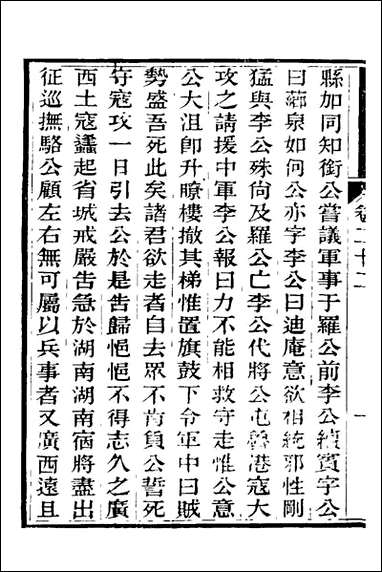 縣加同知銜公嘗議軍事于羅公前李公續賓字公
曰薌泉如何公亦字李公曰迪庵意欲相統邪性剛
猛與李公殊尙及羅公亡李公代將公屯魯港寇大
攻之請援中軍李公報曰力不能相救守走惟公意
公大沮卽升瞭樓撤其梯惟置旗鼓下令軍中曰賊
勢盛吾死此矣諸君欲走者自去眾不肯負公誓死
守寇攻一日引去公於是告歸悒悒不得志久之廣
西土寇蠭起省城戒嚴告急於湖南湖南宿將盡出
征巡撫駱公顧左右無可屬以兵事者又廣西遠且
卷二十二
一